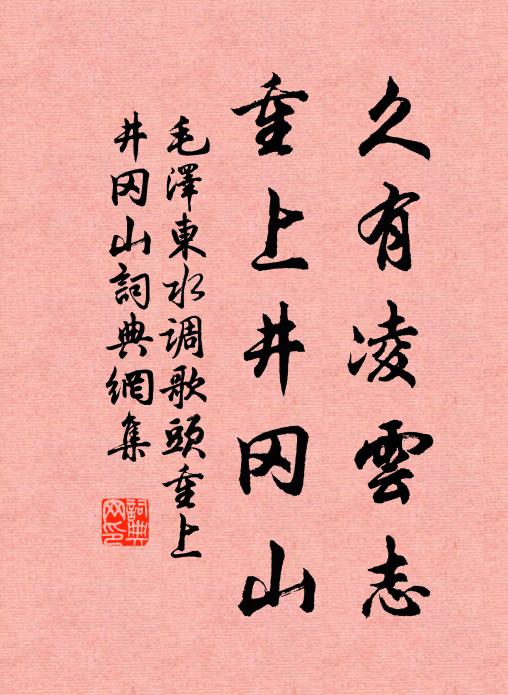 久有凌雲志
重上井冈山
毛澤東水调歌頭重上
井冈山詞典網集
詞典
网印